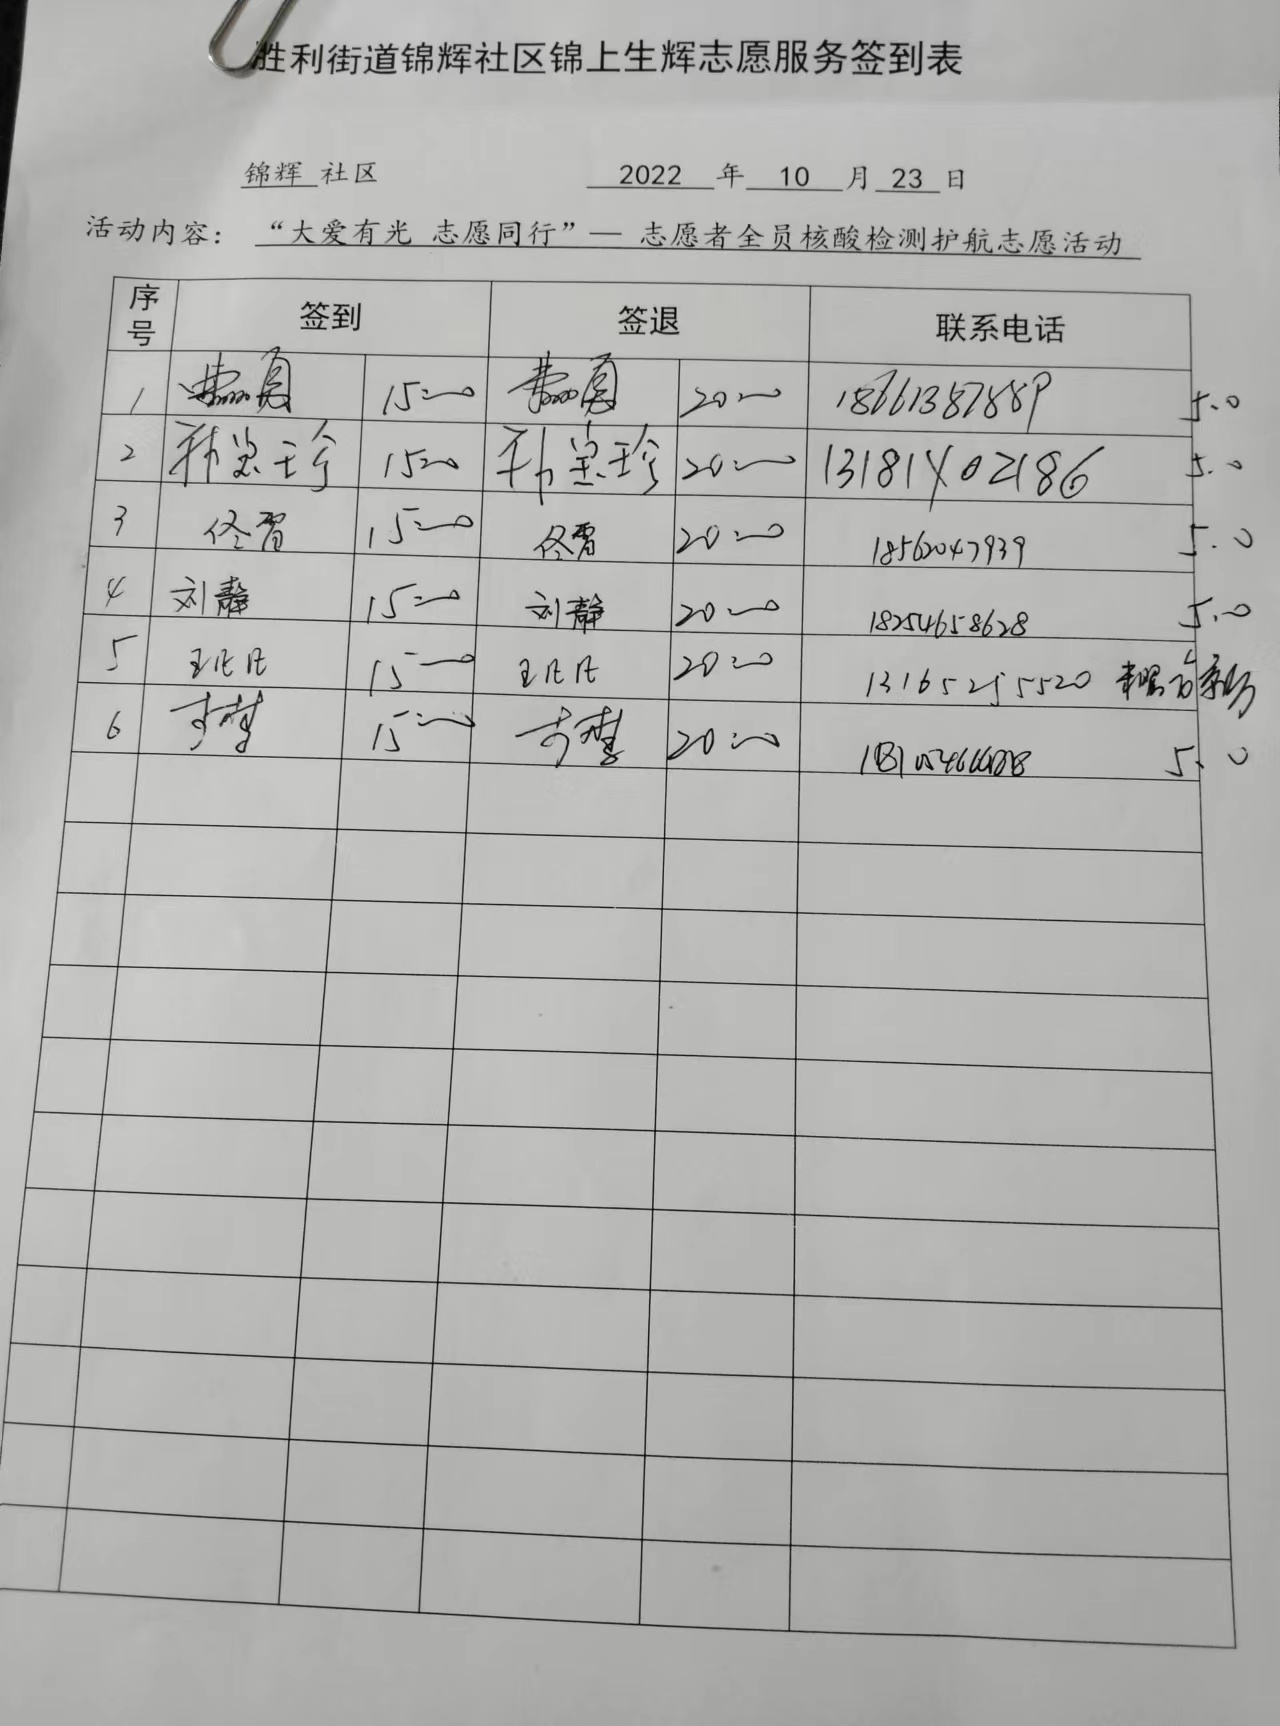 胜利街道锦辉社区锦上生辉志愿服务签到表
锦辉 社区 2022 年 10 月 23 日
活动内容： “大爱有光 志愿同行”— 志愿者全员核酸检测护航志愿活动
序号 签到 签退 联系电话
1 15:00 20:00 18661387889 5.0
2 15:00 20:00 13181402186 5.0
3 佟雪 15:00 佟雪 20:00 18562047939 5.0
4 刘静 15:00 刘静 20:00 18254658628 5.0
5 15:00 20:00 13165255520
6 15:00 20:00 5.0